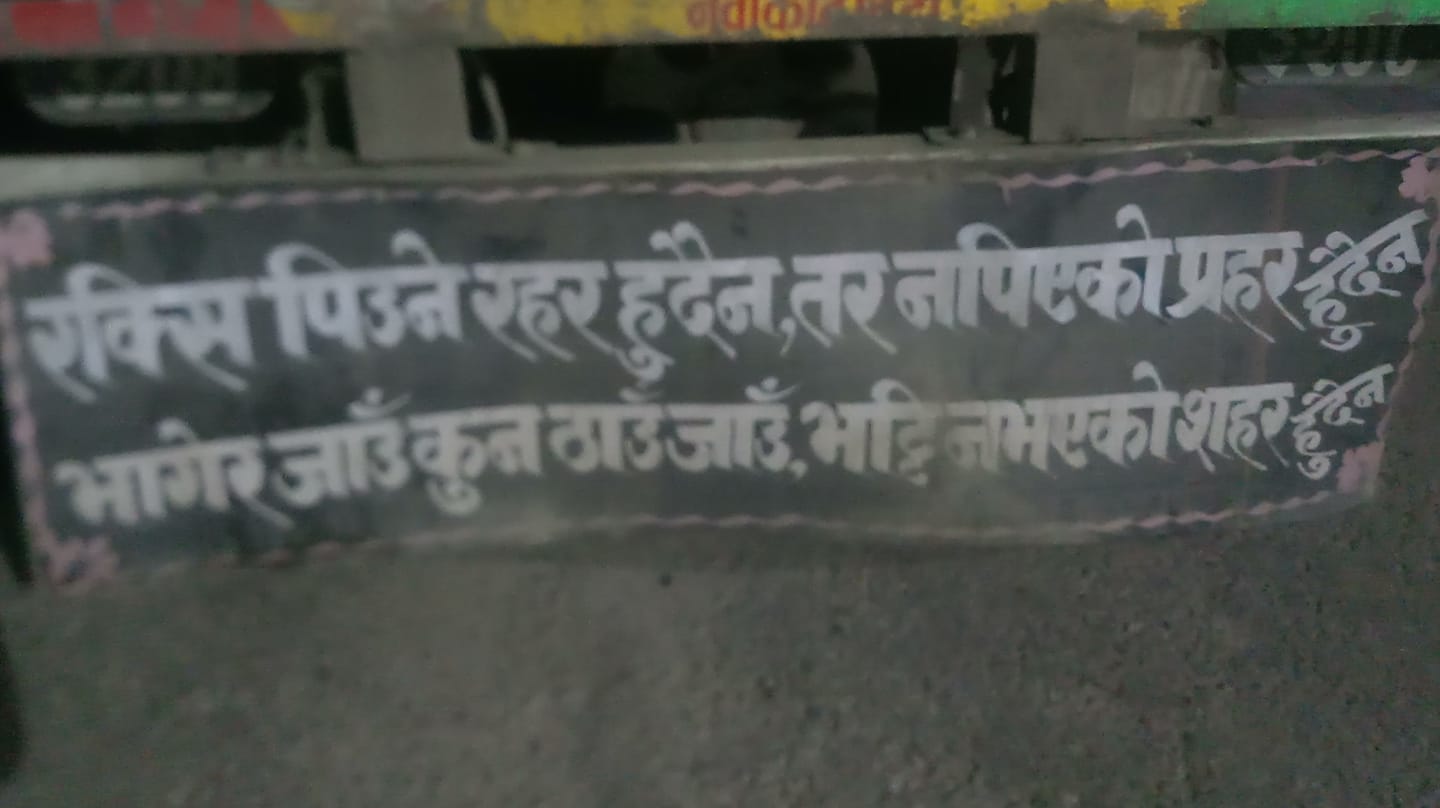 रक्सि पिउने रहर हुदैन, तर नपिएको प्रहर हुदैन
भागेर जाउँ कुन ठाउँ जाउँ, भट्टि नभएको शहर हुदैन